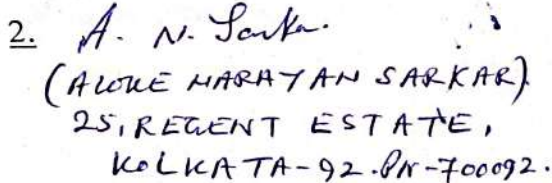 2. A. N. Sarkar.
(ALOKE NARAYAN SARKAR)
25, REGENT ESTATE,
KOLKATA-92. PN-700092.